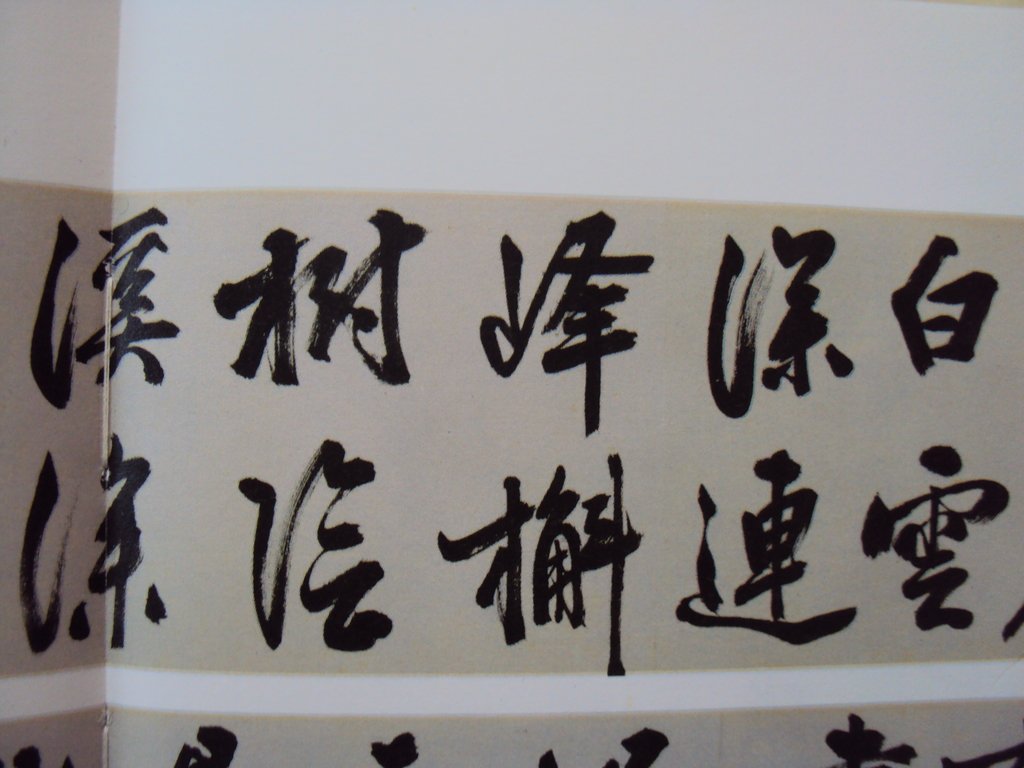 白雲
深連
峰槲
樹陰
溪深